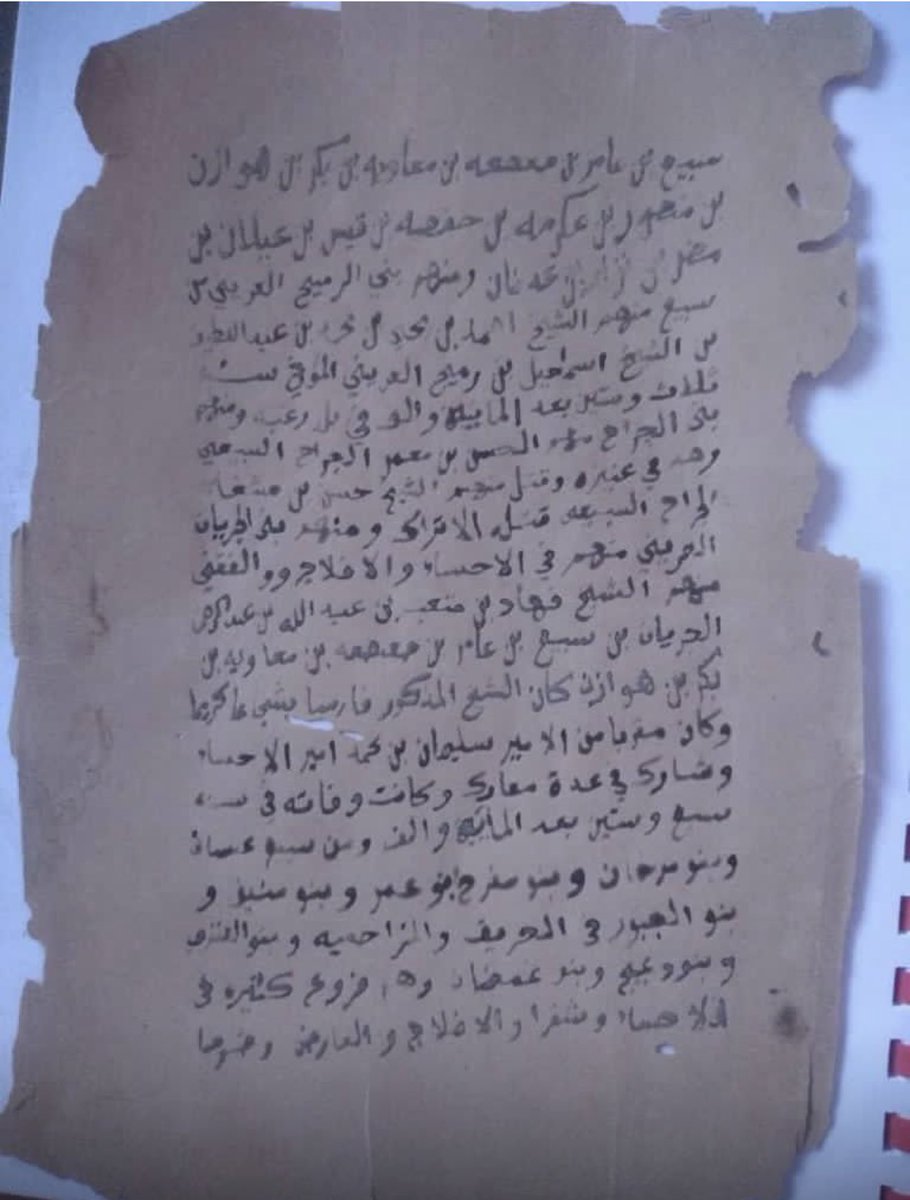 سبيع بن عامر بن صعصعه بن معاويه بن بكر بن هوازن
بن منصور بن عكرمه بن حفصه بن قيس بن عيلان بن
مضر بن نزار بن عدنان ومنهم بني الرميح العريني بن
سبيع منهم الشيخ احمد بن محمد بن بن عبد
بن الشيخ اسماعيل بن رميح العريني المتوفي سنة
ثلاث وستين بعد المايه والف في بلد رغبه ومنهم
بني الجراح منهم الحسن بن معمر الجراح السبيعي
وهم في عنيزه وقتل منهم الشيخ حسن بن مشعاب
الجراح السبيعي قتله الاتراك ومنهم بني الجربان
العريني منهم في الاحساء والافلاج
منهم الشيخ فهاد بن متعب بن عبد الله بن عبد
الجربان بن سبيع بن عامر بن صعصعه بن معاويه بن
بكر بن هوازن كان الشيخ المذكور فارسا كريما
وكان مقربا من الامير سليمان بن محمد امير الاحساء
وشارك في عدة معارك وكانت وفاته في سنه
سبع وستين بعد المائه والف ومن سبيع
وبنو وبنو مفرح بنو عمر وبنو و
بنو الجبور في الحريق والزاحميه وبنو العنزي
وبنو دعيج وبنو غمضان وهم فروع كثيره في
الاحساء وشقرا والافلاج والعارض وضرما